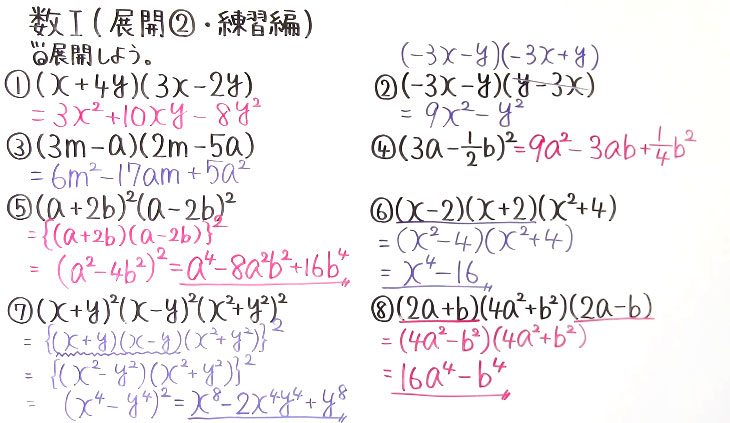 数Ⅰ(展開②・練習編)
展開しよう。
①(x+4y)(3x-2y)
=3x²+10xy-8y²
(-3x-y)(-3x+y)
②(-3x-y)(y-3x)
=9x²-y²
③(3m-a)(2m-5a)
=6m²-17am+5a²
④(3a-1/2b)²=9a²-3ab+1/4b²
⑤(a+2b)²(a-2b)²
={(a+2b)(a-2b)}²
=(a²-4b²)²=a⁴-8a²b²+16b⁴
⑥(x-2)(x+2)(x²+4)
=(x²-4)(x²+4)
=x⁴-16
⑦(x+y)²(x-y)²(x²+y²)²
={(x+y)(x-y)(x²+y²)}²
={(x²-y²)(x²+y²)}²
=(x⁴-y⁴)²=x⁸-2x⁴y⁴+y⁸
⑧(2a+b)(4a²+b²)(2a-b)
=(4a²-b²)(4a²+b²)
=16a⁴-b⁴